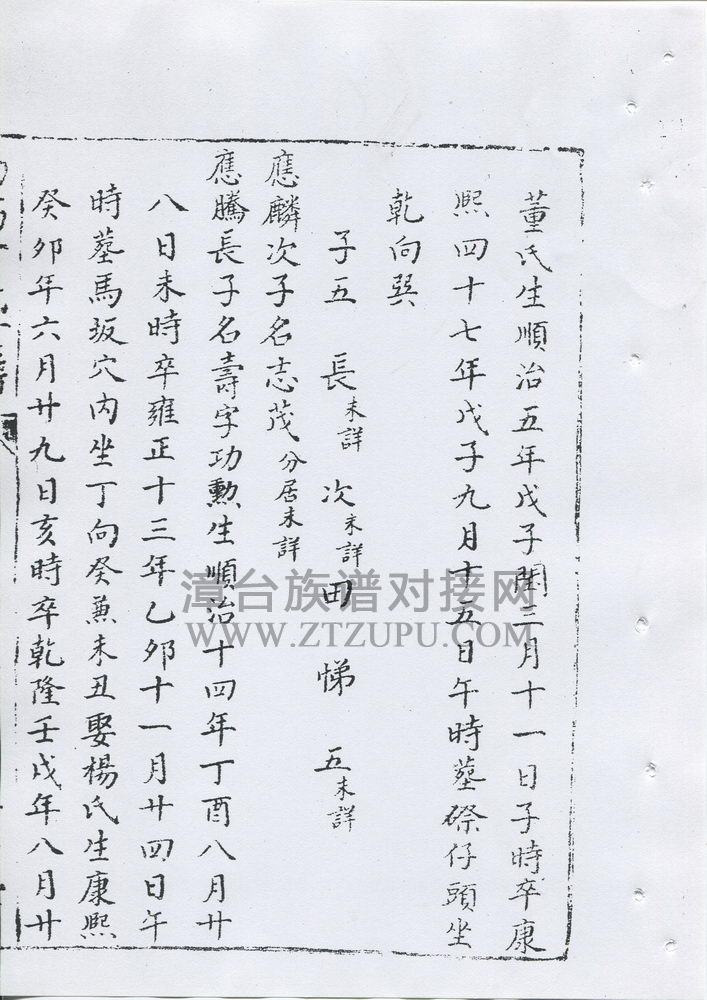 董氏生順治五年戊子閏三月十一日子時卒康
熙四十七年戊子九月十五日午時墓磜仔頭坐
乾向巽
子五　長未詳　次未詳　田　悌　五未詳
應麟次子名志茂分居未詳
應騰長子名壽字功勳生順治十四年丁酉八月廿
八日未時卒雍正十三年乙卯十一月廿四日午
時墓馬坂穴內坐丁向癸兼未丑娶楊氏生康熙
癸卯年六月廿九日亥時卒乾隆壬戌年八月廿
漳台族谱对接网
WWW.ZTZUPU.COM